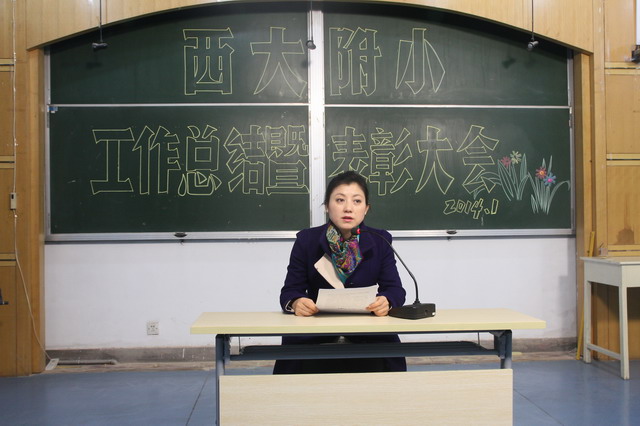 西大附小
工作总结暨表彰大会
2014.1